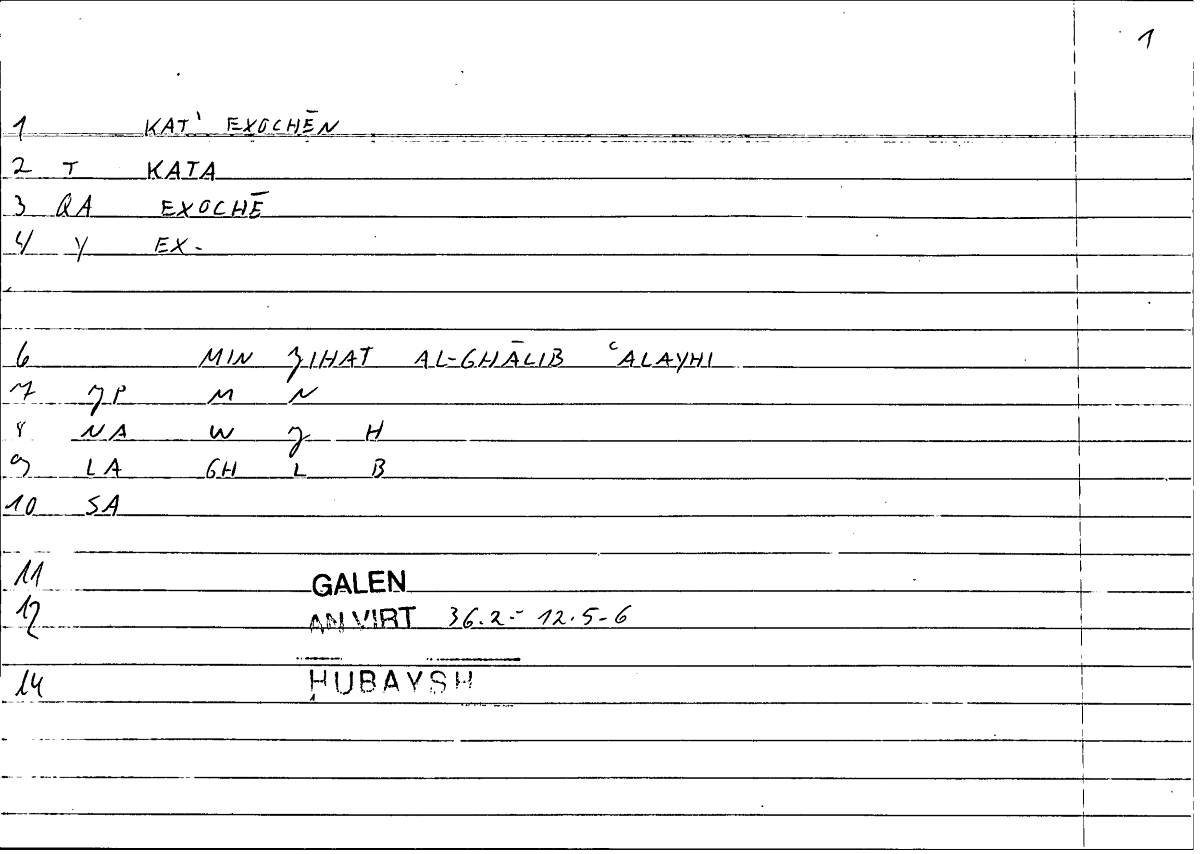 1
1 KAT' EXOCHĒN
2 T KATA
3 QA EXOCHĒ
4 Y EX-
6 MIN ʒIHAT AL-GHĀLIB ʿALAYHI
7 ʒP M N
8 NA W ʒ H
9 LA GH L B
10 SA
11 GALEN
12 AN VIRT 36.2 - 12.5-6
14 ḤUBAYSH